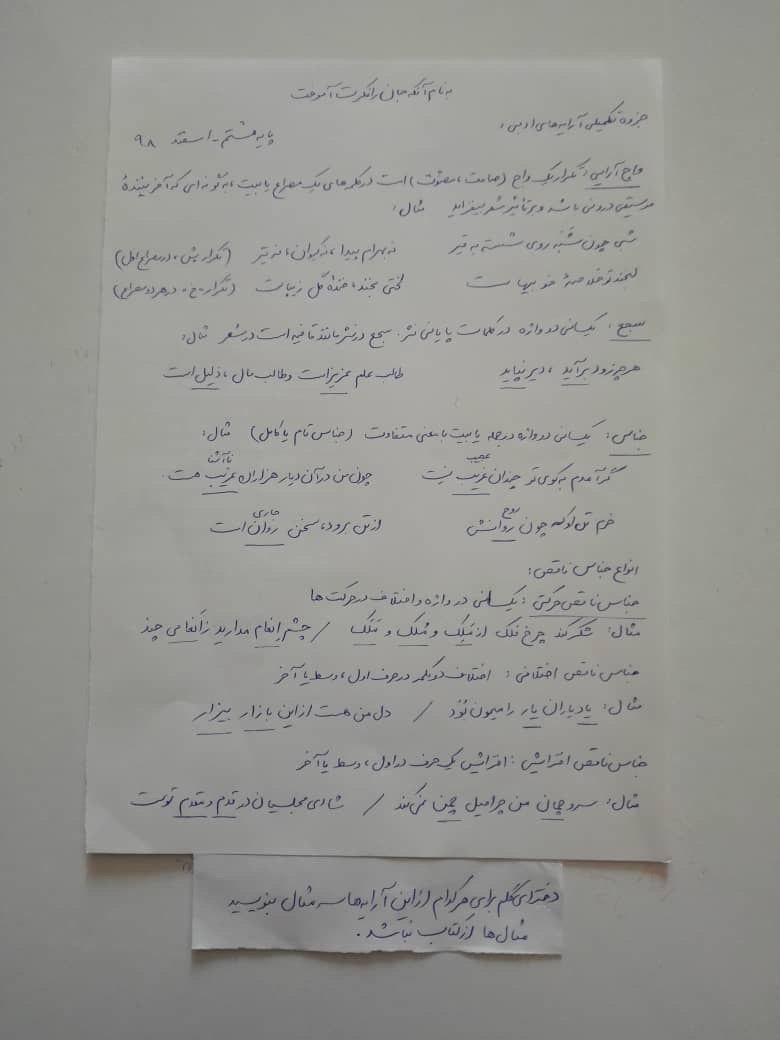 به نام آنکه جان را فکرت آموخت
جزوه تکمیلی آرایه های ادبی:
پایه هشتم - اسفند ۹۸
واج آرایی: تکرار یک واج (صامت، مصوّت) است در کلمه های یک مصراع یا بیت، به گونه ای که آفرینندهٔ
موسیقی درونی باشد و بر تأثیر شعر بیفزاید مثال:
شبی چون شَبَه روی شسته به قیر نه بهرام پیدا، نه کیوان، نه تیر (تکرار «ش» در مصراع اول)
لبخند تو خلاصهٔ خوبیهاست لختی بخند، خندهٔ گل زیباست (تکرار «خ» در هر دو مصراع)
سجع: یکسانی دو واژه در کلمات پایانی نثر. سجع در نثر مانند قافیه است در شعر مثال:
هر چه زود برآید، دیر نپاید طالب علم عزیز است و طالب مال، ذلیل است
جناس: یکسانی دو واژه در جمله یا بیت با معنی متفاوت (جناس تام یا کامل) مثال:
عجیب ناآشنا
گر آمدم به کوی تو چندان غریب نیست چون من در آن دیار هزاران غریب هست.
روح جاری
خرم تن او که چون روانش از تن برود، سخن روان است
انواع جناس ناقص:
جناس ناقص حرکتی: یکسانی دو واژه و اختلاف در حرکت ها
مثال: شکر کند چرخ فلک از مَلِک و مُلک و مَلَک / چشم اِنعام مدارید ز اَنعامی چند
جناس ناقص اختلافی: اختلاف دو کلمه در حرف اول، وسط یا آخر
مثال: یاد یاران یار را میمون بُوَد / دل من هست از این بازار بیزار
جناس ناقص افزایشی: افزایش یک حرف در اول، وسط یا آخر
مثال: سرو چمان من چرا میل چمن نمی کند / شادی مجلسیان در قدم و مقدم توست
دخترای گلم برای هرکدام از این آرایه ها سه مثال بنویسید
مثال ها از کتاب نباشد.